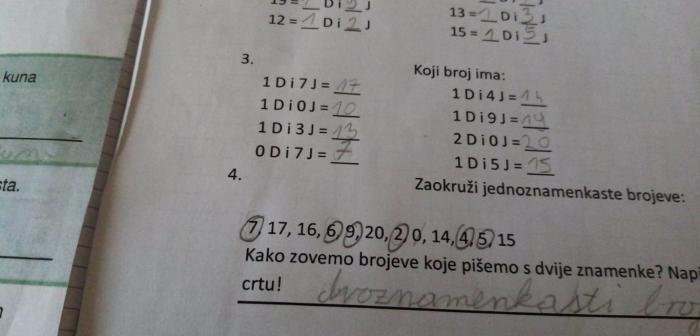 12 = 1 D i 2 J
13 = 1 D i 3 J
15 = 1 D i 5 J
kuna
3.
1 D i 7 J = 17
1 D i 0 J = 10
1 D i 3 J = 13
0 D i 7 J = 7
Koji broj ima:
1 D i 4 J = 14
1 D i 9 J = 19
2 D i 0 J = 20
1 D i 5 J = 15
sta.
4.
Zaokruži jednoznamenkaste brojeve:
7, 17, 16, 6, 9, 20, 2, 0, 14, 4, 5, 15
Kako zovemo brojeve koje pišemo s dvije znamenke? Napi
crtu! dvoznamenkasti bro